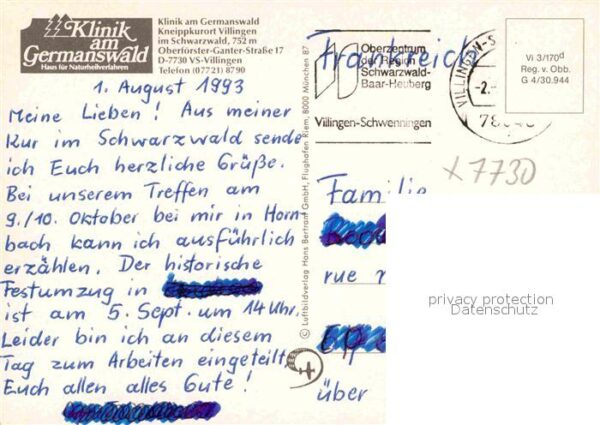 Klinik
am
Germanswald
Haus für Naturheilverfahren
Klinik am Germanswald
Kneippkurort Villingen
im Schwarzwald, 752 m
Oberförster-Ganter-Straße 17
D-7730 VS-Villingen
Telefon (07721) 8790
1. August 1993
Meine Lieben! Aus meiner
Kur im Schwarzwald sende
ich Euch herzliche Grüße.
Bei unserem Treffen am
9./10. Oktober bei mir in Horn-
bach kann ich ausführlich
erzählen. Der historische
Festumzug in
ist am 5. Sept. um 14 Uhr.
Leider bin ich an diesem
Tag zum Arbeiten eingeteilt
Euch allen alles Gute!
© Luftbildverlag Hans Bertram GmbH, Flughafen Riem, 8000 München 87
Frankreich
Oberzentrum
der Region
Schwarzwald-
Baar-Heuberg
Villingen-Schwenningen
VILLINGEN-S
-2.-
Vi 3/170d
Reg. v. Obb.
G 4/30.944
x7730
Familie
rue
über
privacy protection
Datenschutz